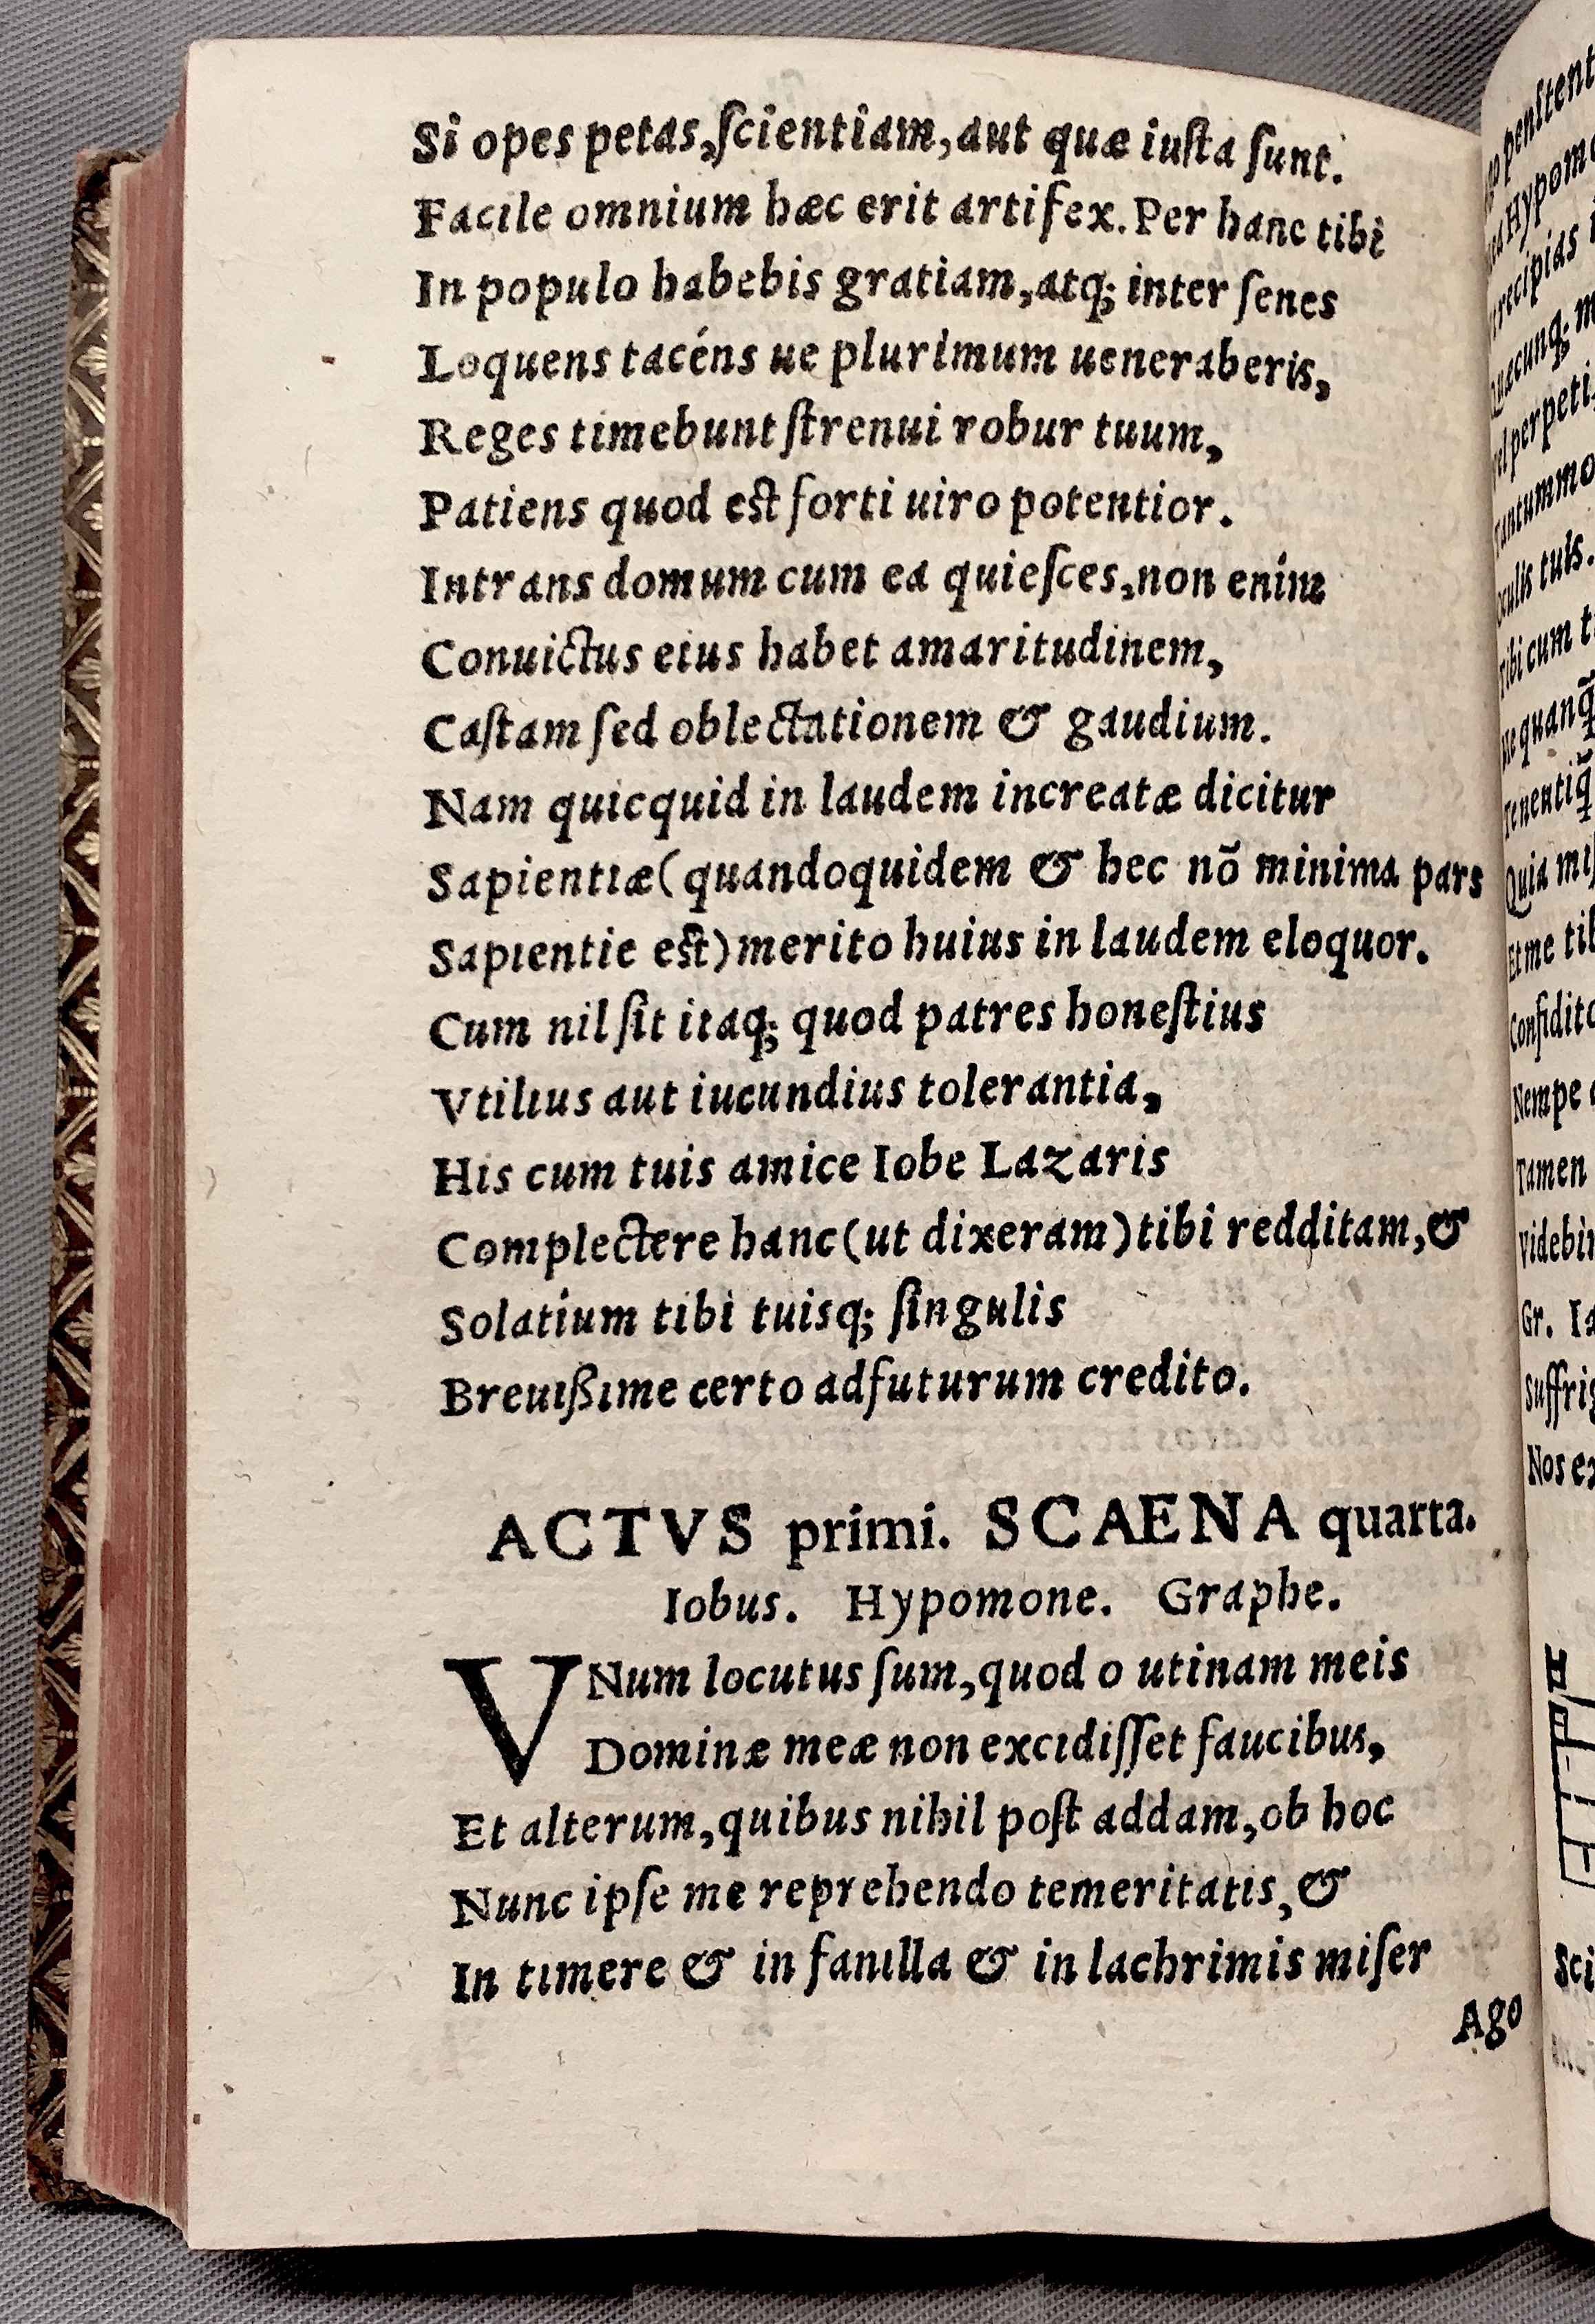 Si opes petas,ſcientiam,aut quæ iuſta ſunt.
Facile omnium hæc erit artifex. Per hanc tibi
In populo habebis gratiam,atq; inter ſenes
Loquens tacéns ue plurimum ueneraberis,
Reges timebunt ſtrenui robur tuum,
Patiens quod est forti uiro potentior.
Intrans domum cum ea quieſces,non enim
Conuictus eius habet amaritudinem,
Caſtam ſed oblectationem & gaudium.
Nam quicquid in laudem increatæ dicitur
Sapientiæ(quandoquidem & hec nõ minima pars
Sapientie est)merito huius in laudem eloquor.
Cum nil ſit itaq; quod patres honeſtius
Vtilius aut iucundius tolerantia,
His cum tuis amice Iobe Lazaris
Complectere hanc(ut dixeram)tibi redditam,&
Solatium tibi tuisq; ſingulis
Breuißime certo adfuturum credito.
ACTVS primi. SCAENA quarta.
Iobus. Hypomone. Graphe.
VNum locutus ſum,quod o utinam meis
Dominæ meæ non excidiſſet faucibus,
Et alterum,quibus nihil poſt addam,ob hoc
Nunc ipſe me reprehendo temeritatis,&
In timere & in fanilla & in lachrimis miſer
Ago
penitent
Hypom
recipias
perpeti,
tantummo
tuis.
Tibi cum
quanq̃
Tenentiq̃
Quia
Et me
Nempe
Tamen
Gr.
Nos